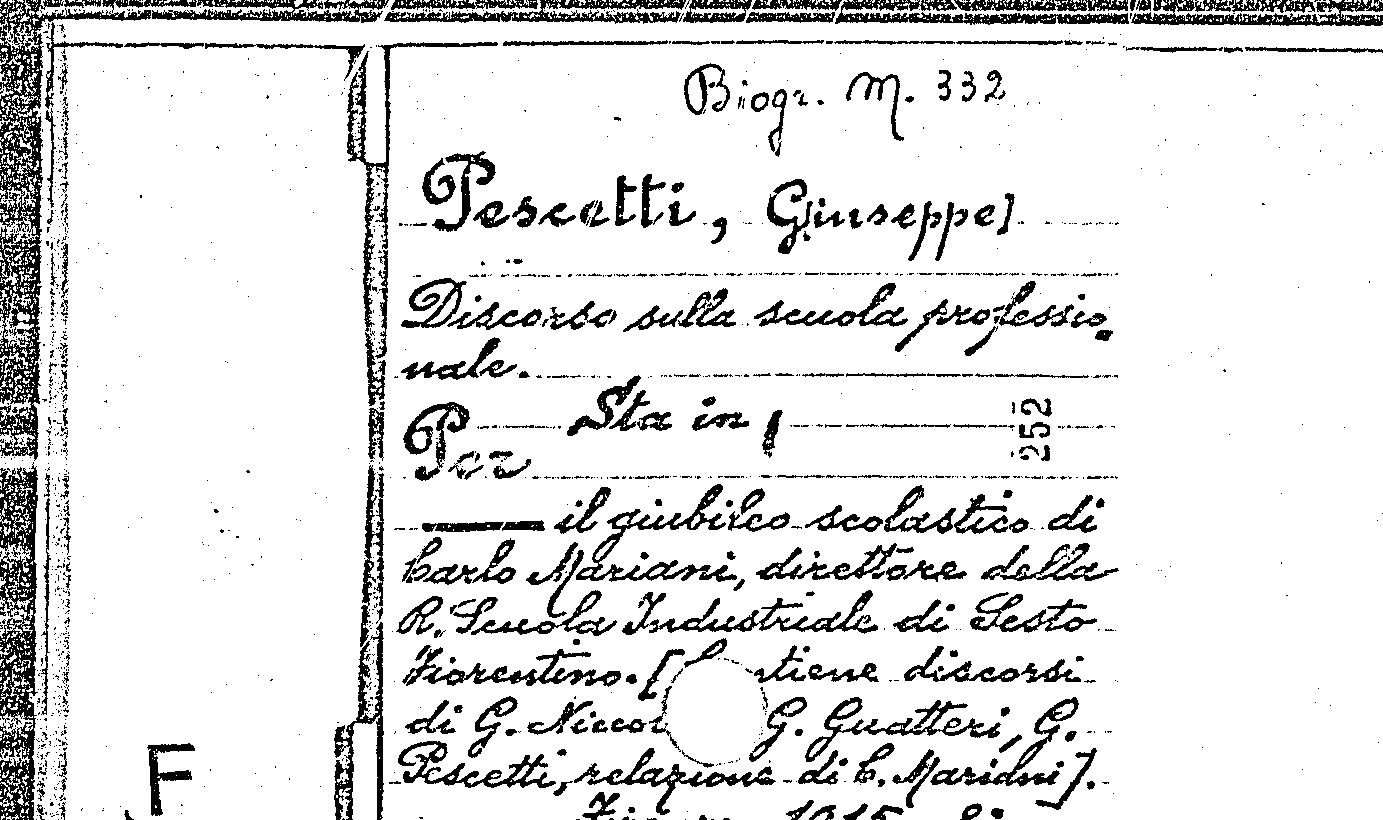 Biogr. M. 332
Pescetti, G[iuseppe]
Discorso sulla scuola professio-
nale.
Sta in
252
Per
il giubileo scolastico di
Carlo Mariani, direttore della
R. Scuola Industriale di Sesto
Fiorentino. [
discorsi
di G. G. Guatteri, G.
Pescetti, relazione di C. Mariani].
1915
F